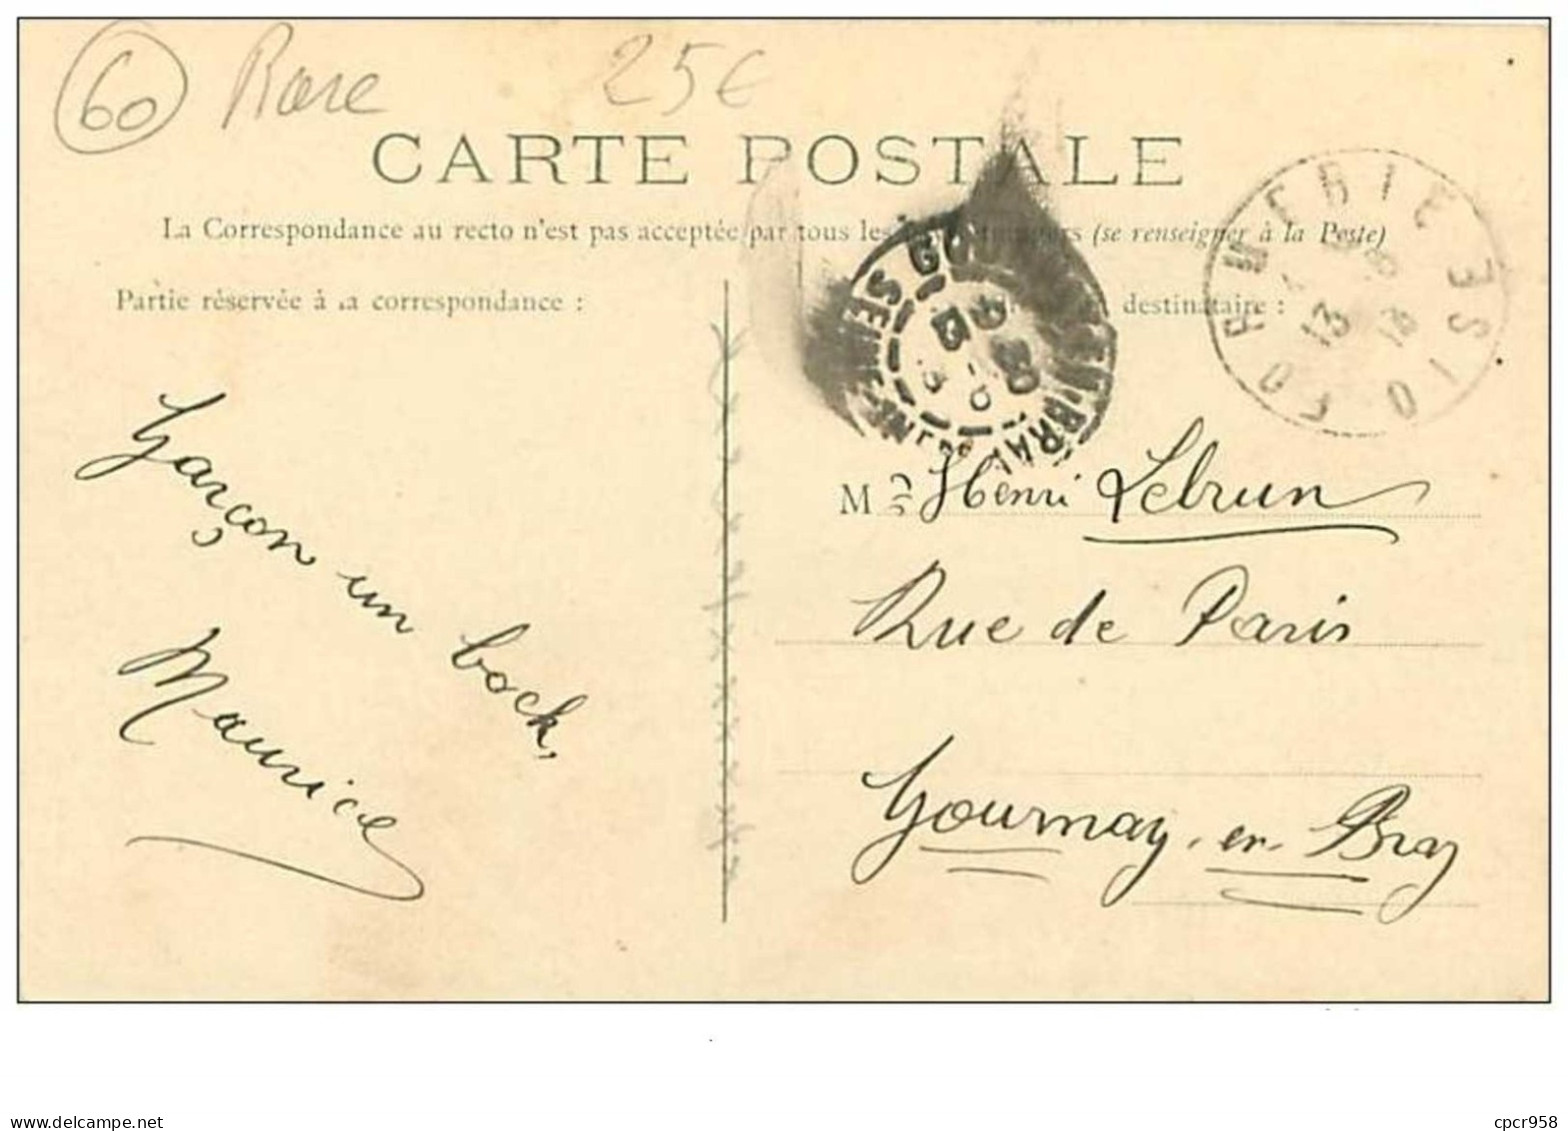 60 Rare 25€
CARTE POSTALE
La Correspondance au recto n'est pas acceptée par tous les (se renseigner à la Poste)
Partie réservée à la correspondance :
destinataire :
FORMERIE OISE
13 13
GOURNAY BRAY
SEINE INFRE
Garçon un bock,
Maurice
M Henri Lebrun
Rue de Paris
Gournay-en-Bray
www.delcampe.net
cpcr958